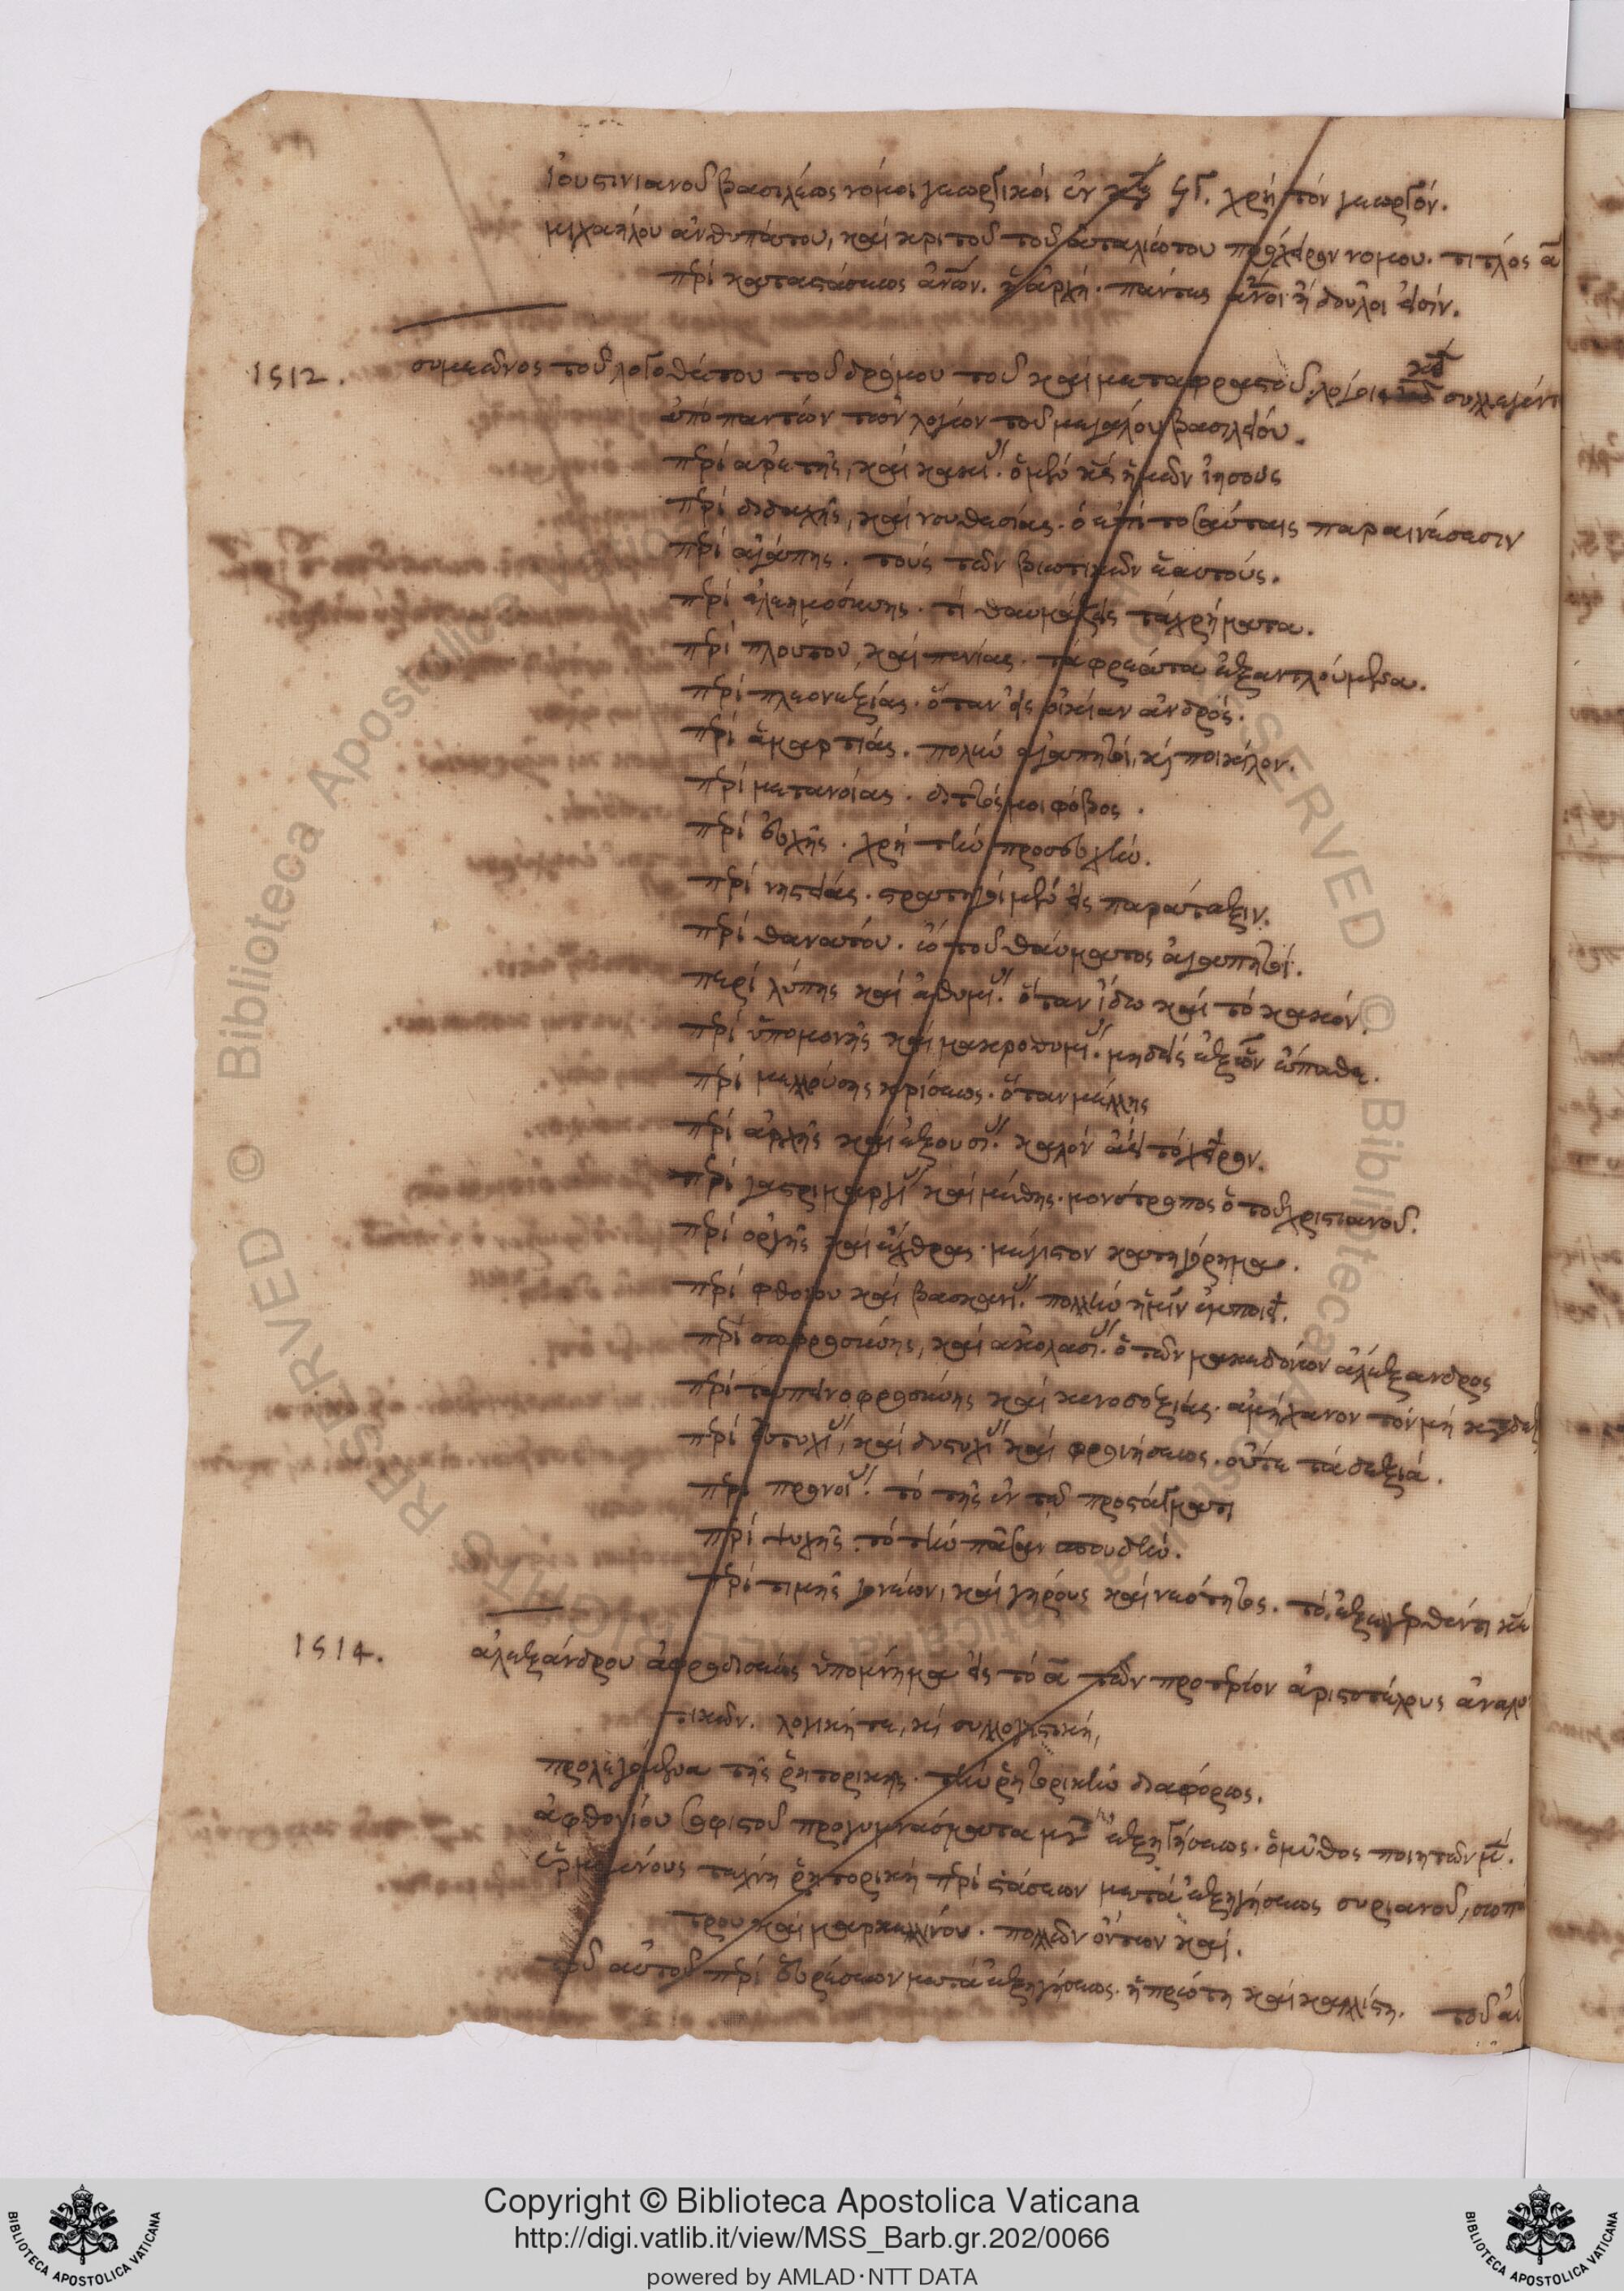 ἰουστινιανοῦ βασιλέως νόμοι γεωργικοὶ ἐν χρὴ τὸν γεωργόν.
μιχαήλου ἀνθυπάτου, καὶ κριτοῦ τοῦ ἀτταλιώτου πρόχειρον νόμου. τίτλος α
πρὶ καταστάσεως ἀνων. ἡ ἀρχή. πάντες ἀνοι ἢ δοῦλοι εἰσίν.
1512. συμεῶνος τοῦ λογοθέτου τοῦ δρόμου τοῦ καὶ μεταφραστοῦ. λόγοι κδ συλλεγέντ
ἀπὸ πάντων τῶν λόγων τοῦ μεγάλου βασιλείου.
πρὶ ἀρετῆς, καὶ κακί. ὁ μὲν κς ἡμῶν ἰησοῦς
πρὶ διδαχῆς, καὶ νουθεσίας. ὁ ἐπὶ τοιαύταις παραινέσεσιν
πρὶ ἀγάπης. τοὺς τῶν βιωτικῶν ἑαυτούς.
πρὶ ἐλεημοσύνης. τί θαυμάζεις τὰ χρήματα.
πρὶ πλούτου, καὶ πενίας. τὰ φρέατα ἐξαντλούμενα.
πρὶ πλεονεξίας. ὅταν εἰς οἰκίαν ἀνδρός.
πρὶ ἁμαρτίας. πολὺ ἀγαπητοὶ, κὶ ποικίλον.
πρὶ μετανοίας. διττός μοι φόβος.
πρὶ εὐχῆς. χρὴ τὴν προσευχὴν.
πρὶ νηστείας. στρατηγοὶ μὲν εἰς παράταξιν.
πρὶ θανάτου. ὢ τοῦ θαύματος ἀγαπητοί.
περὶ λύπης καὶ ἀθυμί. ὅταν ἴδω καὶ τὸ κακόν.
πρὶ ὑπομονῆς καὶ μακροθυμί. μηδεὶς ἐξ ὧν ἔπαθε.
πρὶ μελλούσης κρίσεως. ὅταν μέλλῃς
πρὶ ἀρχῆς καὶ ἐξουσί. καλὸν ἀεὶ τὸ χεῖρον.
πρὶ γαστριμαργί καὶ μέθης. μονότροπος ὁ τοῦ χριστιανοῦ.
πρὶ ὀργῆς καὶ ἔχθρας. μέγιστον κατηγόρημα.
πρὶ φθόνου καὶ βασκανί. πολλὴν ἡμῖν ἐμποιεῖ.
πρὶ σωφροσύνης, καὶ ἀκολασί. ὁ τῶν μακεδόνων ἀλέξανδρος
πρὶ ταπεινοφροσύνης καὶ κενοδοξίας. ἀμήχανον τὸν μὴ
πρὶ εὐτυχί, καὶ δυστυχί καὶ φρονήσεως. οὔτε τὰ δεξιά.
πρὶ προνοί. τὸ τῆς ἐν τῷ προστάγματι
πρὶ ψυχῆς. τὸ τὴν πᾶσαν σπουδὴν.
πρὶ τιμῆς γονέων, καὶ γήρους καὶ νεότητος. τὸ
1514. ἀλεξάνδρου ἀφροδισέως ὑπόμνημα εἰς τὸ α τῶν προτέρων ἀριστοτέλους ἀναλυ
τικῶν. λογική τε, κὶ συλλογιστική,
προλεγόμενα τῆς ῥητορικῆς. τὴν ῥητορικὴν διαφόρως.
ἀφθονίου σοφιστοῦ προγυμνάσματα μετὰ ἐξηγήσεως. ὁ μῦθος ποιητῶν μέ.
ἑρμογένους τέχνη ῥητορικὴ πρὶ στάσεων μετὰ ἐξηγήσεως συριανοῦ, σωπά
τρου καὶ μαρκελλίνου. πολλῶν ὄντων καὶ.
τοῦ αὐτοῦ πρὶ εὑρέσεων μετὰ ἐξηγήσεως. ἡ πρώτη καὶ καλλίστη. τοῦ αὐ
Copyright © Biblioteca Apostolica Vaticana
http://digi.vatlib.it/view/MSS_Barb.gr.202/0066
powered by AMLAD·NTT DATA
BIBLIOTECA APOSTOLICA VATICANA
BIBLIOTECA APOSTOLICA VATICANA